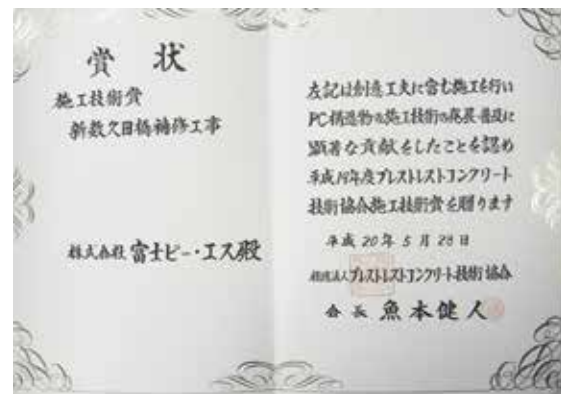 賞状
施工技術賞
新数久田橋補修工事
株式会社 富士ピー・エス殿
左記は創造工夫に富む施工を行い
PC構造物の施工技術の発展・普及に
顕著な貢献をしたことを認め
平成19年度プレストレストコンクリート
技術協会施工技術賞を贈ります
平成20年5月28日
社団法人プレストレストコンクリート技術協会
会長 魚本健人